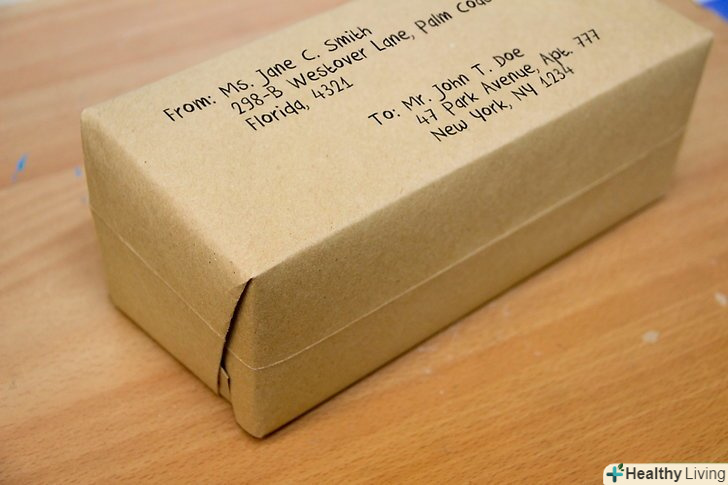 From: Ms. Jane C. Smith
298-B Westover Lane, Palm
Florida, 4321
To: Mr. John T. Doe
47 Park Avenue, Apt. 777
New York, NY 1234
Healthy Living